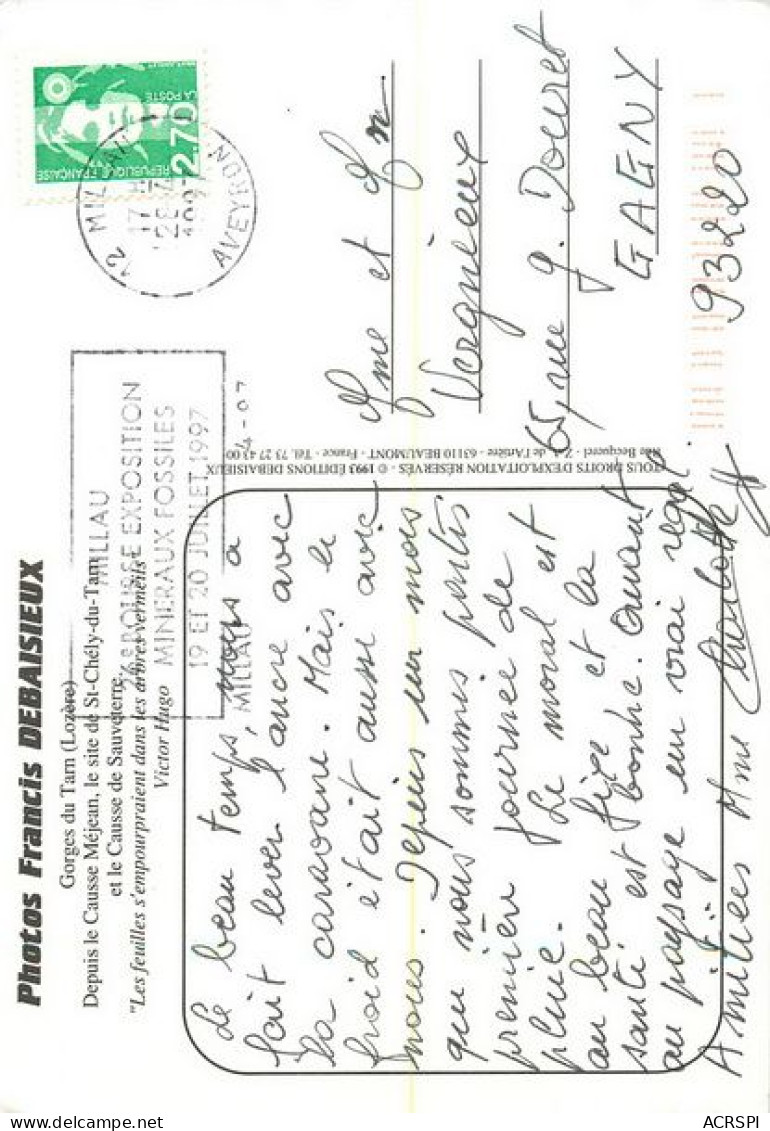 Photos Francis DEBAISIEUX
Gorges du Tarn (Lozère)
Depuis le Causse Méjean, le site de St-Chély-du-Tarn
et le Causse de Sauveterre.
"Les feuilles s'empourpraient dans les arbres vermeils"
Victor Hugo
MILLAU
26e BOURSE EXPOSITION
MINERAUX FOSSILES
19 ET 20 JUILLET 1997
MILLAU
12 MILLAU
17 H
28-4
1997
AVEYRON
REPUBLIQUE FRANÇAISE
LA POSTE
2,70
Le beau temps, nous a
fait lever l'ancre avec
la caravane. Mais le
froid était aussi avec
nous. Depuis un mois
que nous sommes partis
première journée de
pluie. Le moral est
au beau fixe et la
santé est bonne. Quant
au paysage un vrai régal
Amitiés Mme
TOUS DROITS D'EXPLOITATION RÉSERVÉS - © 1993 ÉDITIONS DEBAISIEUX
Rue Becquerel - Z.A. de l'Artière - 63110 BEAUMONT - France - Tél. 73 27 43 00
Mme et Mr
65, rue
GAGNY
93220
ACRSPI